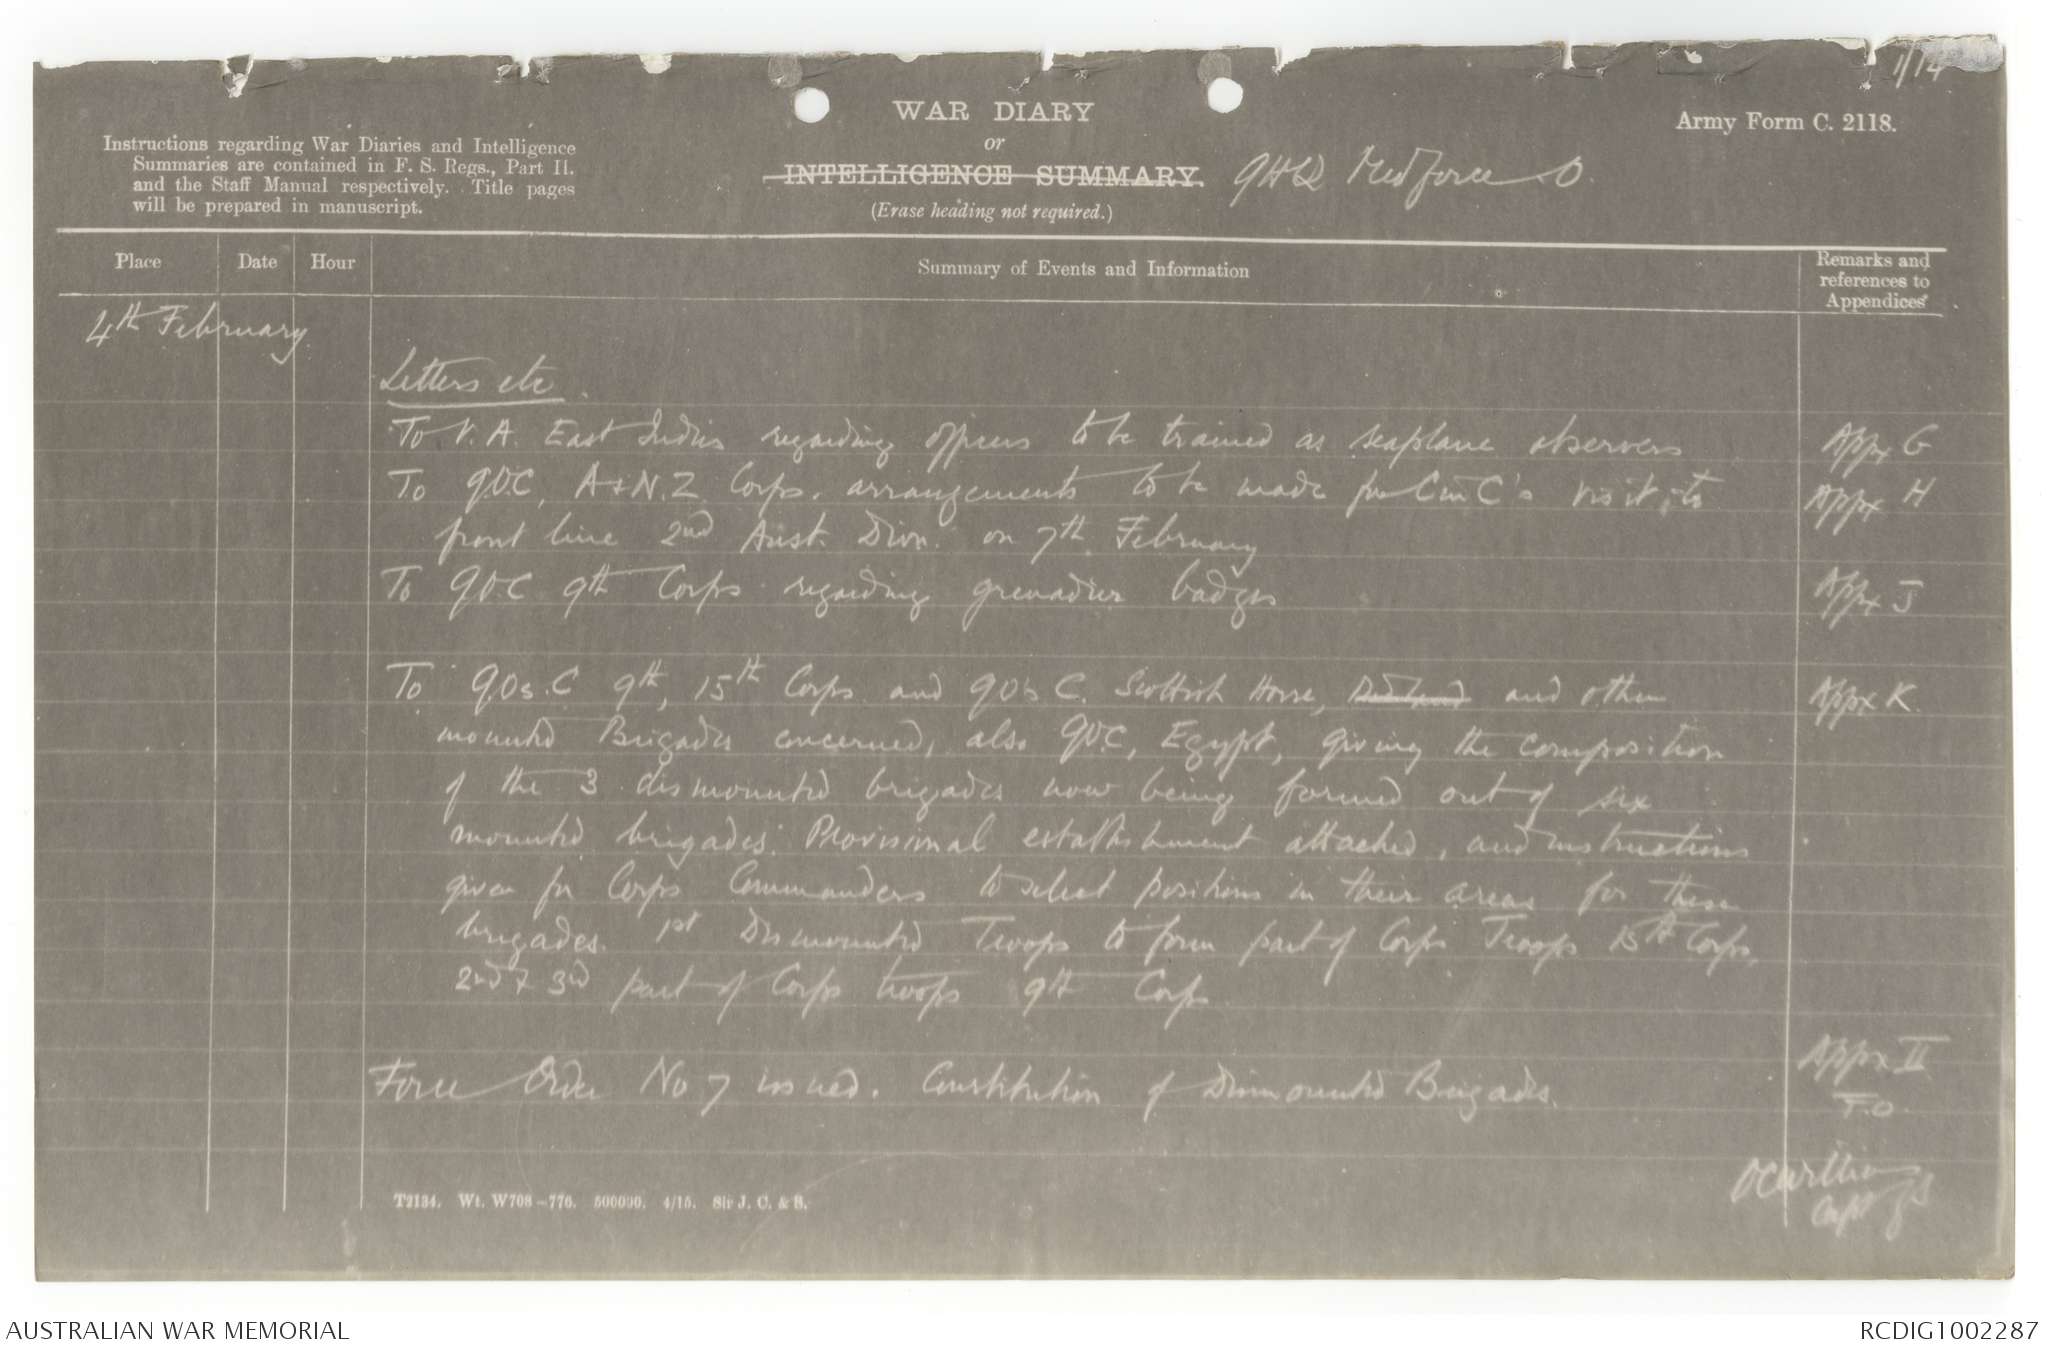 1/14
WAR DIARY
or
INTELLIGENCE SUMMARY.
(Erase heading not required.)
Army Form C. 2118.
Instructions regarding War Diaries and Intelligence
Summaries are contained in F. S. Regs., Part II.
and the Staff Manual respectively. Title pages
will be prepared in manuscript.
GHQ Medforce O.
Place
Date
Hour
Summary of Events and Information
Remarks and
references to
Appendices
4th February
Letters etc.
To V.A. East Indies regarding officers to be trained as seaplane observers Appx G
To G.O.C, A & N.Z Corps. arrangements to be made for C in C's visit to Appx H
front line 2nd Aust. Divn. on 7th February
To G.O.C 9th Corps regarding grenadier badges Appx J
To G.Os.C 9th, 15th Corps and G.O's C. Scottish Horse, and other Appx K.
mounted Brigades concerned, also G.O.C, Egypt, giving the composition
of the 3 dismounted brigades now being formed out of six
mounted brigades. Provisional establishment attached, and instructions
given for Corps Commanders to select positions in their areas for these
brigades. 1st Dismounted Troops to form part of Corps Troops 15th Corps,
2nd & 3rd part of Corps troops 9th Corps
Force Order No 7 issued. Constitution of Dismounted Brigades. Appx II
F.O
OCWilliams
Capt GS
T2134. Wt. W708-776. 500000. 4/15. Sir J. C. & S.
AUSTRALIAN WAR MEMORIAL
RCDIG1002287